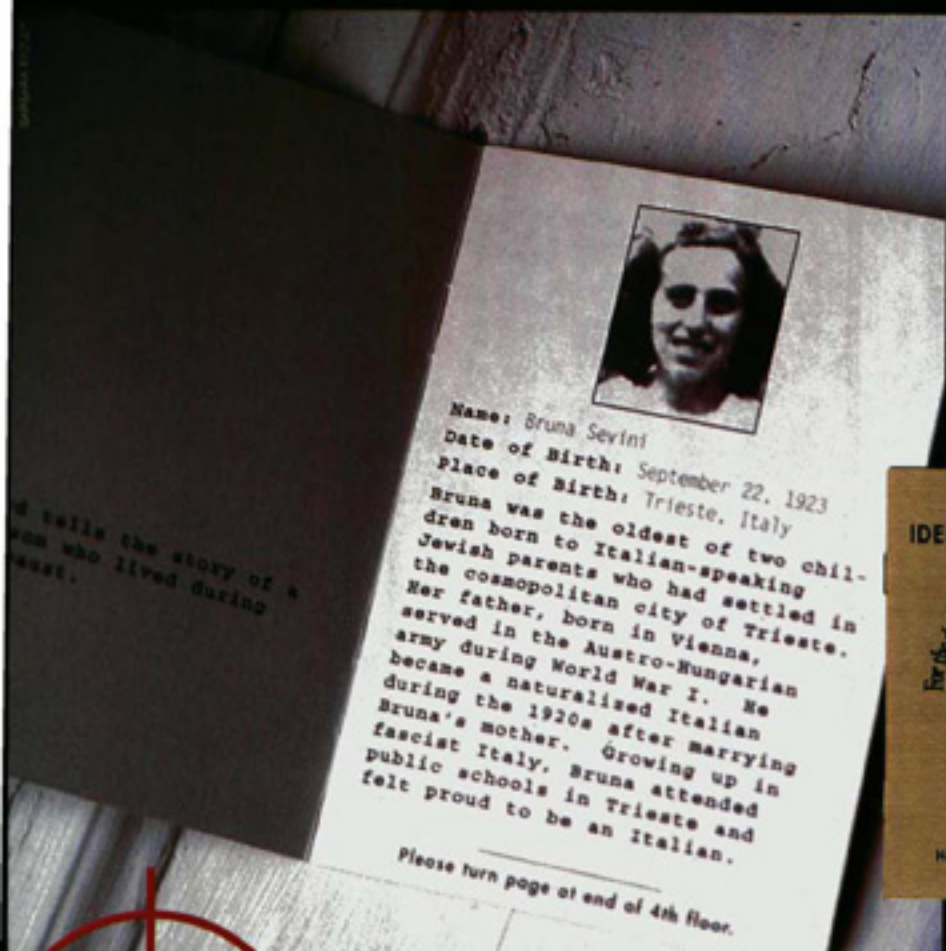 d tells the story of a
son who lived during
aust.
Name: Bruna Sevini
Date of Birth: September 22, 1923
Place of Birth: Trieste, Italy
Bruna was the oldest of two chil-
dren born to Italian-speaking
Jewish parents who had settled in
the cosmopolitan city of Trieste.
Her father, born in Vienna,
served in the Austro-Hungarian
army during World War I. He
became a naturalized Italian
during the 1920s after marrying
Bruna's mother. Growing up in
fascist Italy, Bruna attended
public schools in Trieste and
felt proud to be an Italian.
Please turn page at end of 4th floor.
IDE
For the